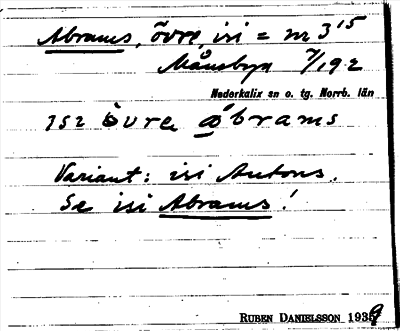 Abrams, övre, isi = nr 3¹⁵
Månsbyn 7/19·2
Nederkalix sn o. tg. Norrb. län
ısı òvrɐ ábrams
Variant: isi Antons.
Se isi Abrams!
RUBEN DANIELSSON 1939